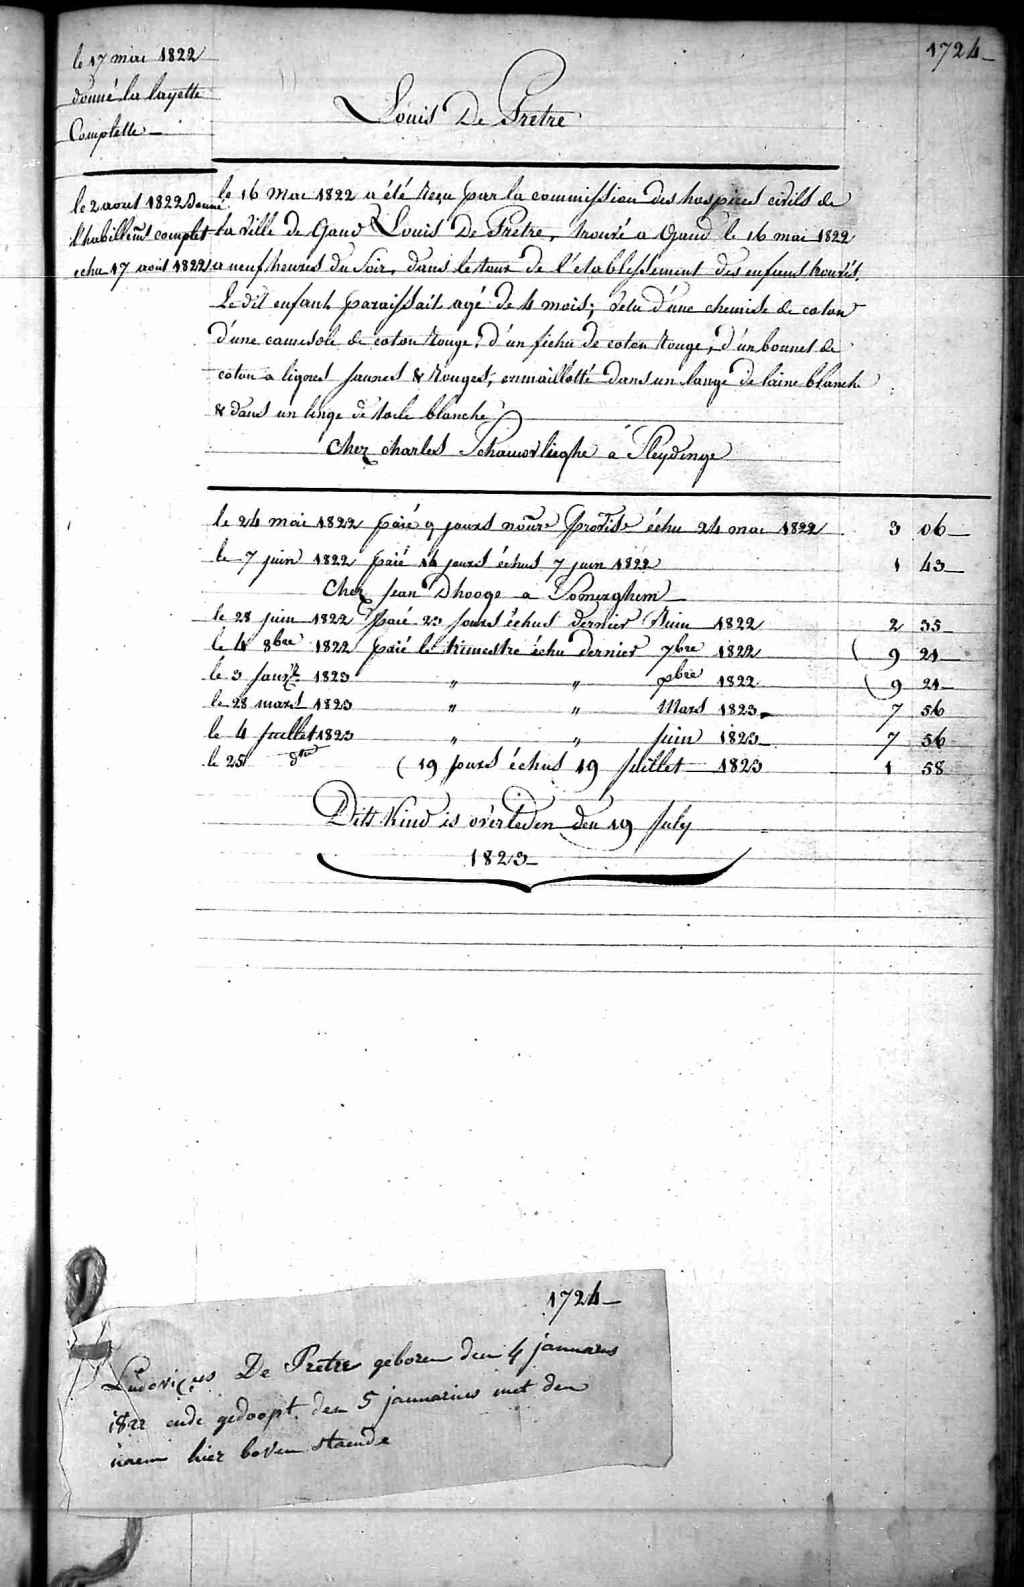 1724
le 17 mai 1822
donné la layette
Complette
Louis De Pretre
le 2 aout 1822 Donné
l'habillemt complet
echu 17 août 1822
le 16 Mai 1822 a été Reçu par la commission des hospices civils de
la ville de Gand Louis De Pretre, trouvé a Gand le 16 mai 1822
a neuf heures du Soir, dans le tour de l'etablissement des enfans trouvés.
Le dit enfant paraissait agé de 4 mois; vetu d'une chemise de coton
d'une camesole de coton Rouge, d'un fichu de coton Rouge, d'un bonnet de
coton a lignes jaunes & Rouges, emmaillotté dans un lange de laine blanche
& dans un linge de toile blanche
Chez charles Schauvlieghe à Sleydinge
le 24 mai 1822 païé 9 jours nourre Provise échu 24 mai 1822 3 06
le 7 juin 1822 païé 14 jours échus 7 juin 1822 1 43
Chez Jean Dhooge a Somerghem
le 28 juin 1822 païé 23 jours échus dernier Juin 1822 2 35
le 4 8bre 1822 païé le trimestre échu dernier 7bre 1822 9 21
le 3 Janvr 1823 " " Xbre 1822 9 21
le 28 mars 1823 " " Mars 1823 7 56
le 4 Juillet 1823 " " juin 1823 7 56
le 25 dto 19 jours échus 19 Juillet 1823 1 58
Dits Kind is overleden den 19 July
1823
1724
Ludovicus De Pretre geboren den 4 januarius
1822 ende gedoopt den 5 januarius met den
naem hier boven staende